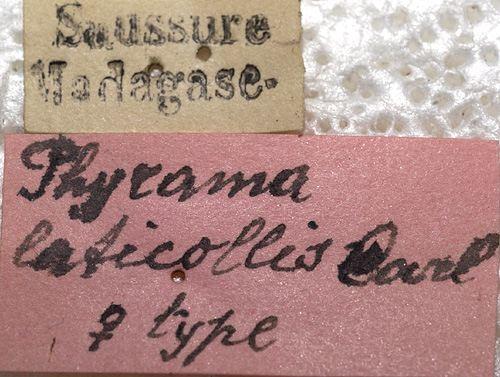 Saussure
Madagasc.
Thyrama
laticollis Carl
♀ type